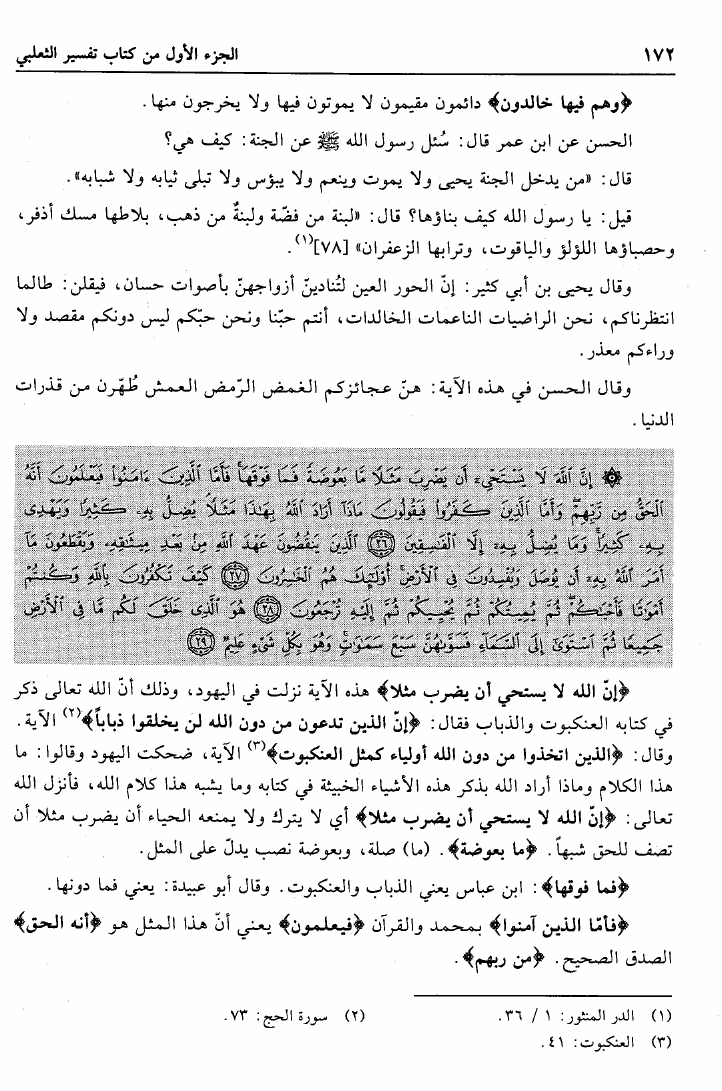 ١٧٢ الجزء الأول من كتاب تفسير الثعلبي
﴿وهم فيها خالدون﴾ دائمون مقيمون لا يموتون فيها ولا يخرجون منها.
الحسن عن ابن عمر قال: سُئل رسول الله ﷺ عن الجنة: كيف هي؟
قال: «من يدخل الجنة يحيى ولا يموت وينعم ولا يبؤس ولا تبلى ثيابه ولا شبابه».
قيل: يا رسول الله كيف بناؤها؟ قال: «لبنة من فضّة ولبنةٌ من ذهب، بلاطها مسك أذفر،
وحصباؤها اللؤلؤ والياقوت، وترابها الزعفران» [٧٨](١).
وقال يحيى بن أبي كثير: إنّ الحور العين لتُنادينّ أزواجهنّ بأصوات حسان، فيقلن: طالما
انتظرناكم، نحن الراضيات الناعمات الخالدات، أنتم حبّنا ونحن حبّكم ليس دونكم مقصد ولا
وراءكم معذر.
وقال الحسن في هذه الآية: هنّ عجائزكم الغمض الرّمض العمش طُهّرن من قذرات
الدنيا.
۞ إِنَّ اللَّهَ لَا يَسْتَحْيِۦ أَن يَضْرِبَ مَثَلًا مَّا بَعُوضَةً فَمَا فَوْقَهَا ۚ فَأَمَّا الَّذِينَ ءَامَنُوا فَيَعْلَمُونَ أَنَّهُ
الْحَقُّ مِن رَّبِّهِمْ ۖ وَأَمَّا الَّذِينَ كَفَرُوا فَيَقُولُونَ مَاذَا أَرَادَ اللَّهُ بِهَٰذَا مَثَلًا ۘ يُضِلُّ بِهِۦ كَثِيرًا وَيَهْدِى
بِهِۦ كَثِيرًا ۚ وَمَا يُضِلُّ بِهِۦ إِلَّا الْفَاسِقِينَ ٢٦ الَّذِينَ يَنقُضُونَ عَهْدَ اللَّهِ مِنْ بَعْدِ مِيثَاقِهِۦ وَيَقْطَعُونَ مَا
أَمَرَ اللَّهُ بِهِۦ أَن يُوصَلَ وَيُفْسِدُونَ فِى الْأَرْضِ ۚ أُولَٰئِكَ هُمُ الْخَاسِرُونَ ٢٧ كَيْفَ تَكْفُرُونَ بِاللَّهِ وَكُنتُمْ
أَمْوَاتًا فَأَحْيَاكُمْ ۖ ثُمَّ يُمِيتُكُمْ ثُمَّ يُحْيِيكُمْ ثُمَّ إِلَيْهِ تُرْجَعُونَ ٢٨ هُوَ الَّذِى خَلَقَ لَكُم مَّا فِى الْأَرْضِ
جَمِيعًا ثُمَّ اسْتَوَىٰ إِلَى السَّمَاءِ فَسَوَّاهُنَّ سَبْعَ سَمَاوَاتٍ ۚ وَهُوَ بِكُلِّ شَىْءٍ عَلِيمٌ ٢٩
﴿إنّ الله لا يستحي أن يضرب مثلا﴾ هذه الآية نزلت في اليهود، وذلك أنّ الله تعالى ذكر
في كتابه العنكبوت والذباب فقال: ﴿إنّ الذين تدعون من دون الله لن يخلقوا ذباباً﴾(٢) الآية.
وقال: ﴿الذين اتخذوا من دون الله أولياء كمثل العنكبوت﴾(٣) الآية، ضحكت اليهود وقالوا: ما
هذا الكلام وماذا أراد الله بذكر هذه الأشياء الخبيثة في كتابه وما يشبه هذا كلام الله، فأنزل الله
تعالى: ﴿إنّ الله لا يستحي أن يضرب مثلا﴾ أي لا يترك ولا يمنعه الحياء أن يضرب مثلا أن
تصف للحق شبهاً. ﴿ما بعوضة﴾. (ما) صلة، وبعوضة نصب يدلّ على المثل.
﴿فما فوقها﴾: ابن عباس يعني الذباب والعنكبوت. وقال أبو عبيدة: يعني فما دونها.
﴿فأمّا الذين آمنوا﴾ بمحمد والقرآن ﴿فيعلمون﴾ يعني أنّ هذا المثل هو ﴿أنه الحق﴾
الصدق الصحيح. ﴿من ربهم﴾.
(١) الدر المنثور: ١ / ٣٦. (٢) سورة الحج: ٧٣.
(٣) العنكبوت: ٤١.